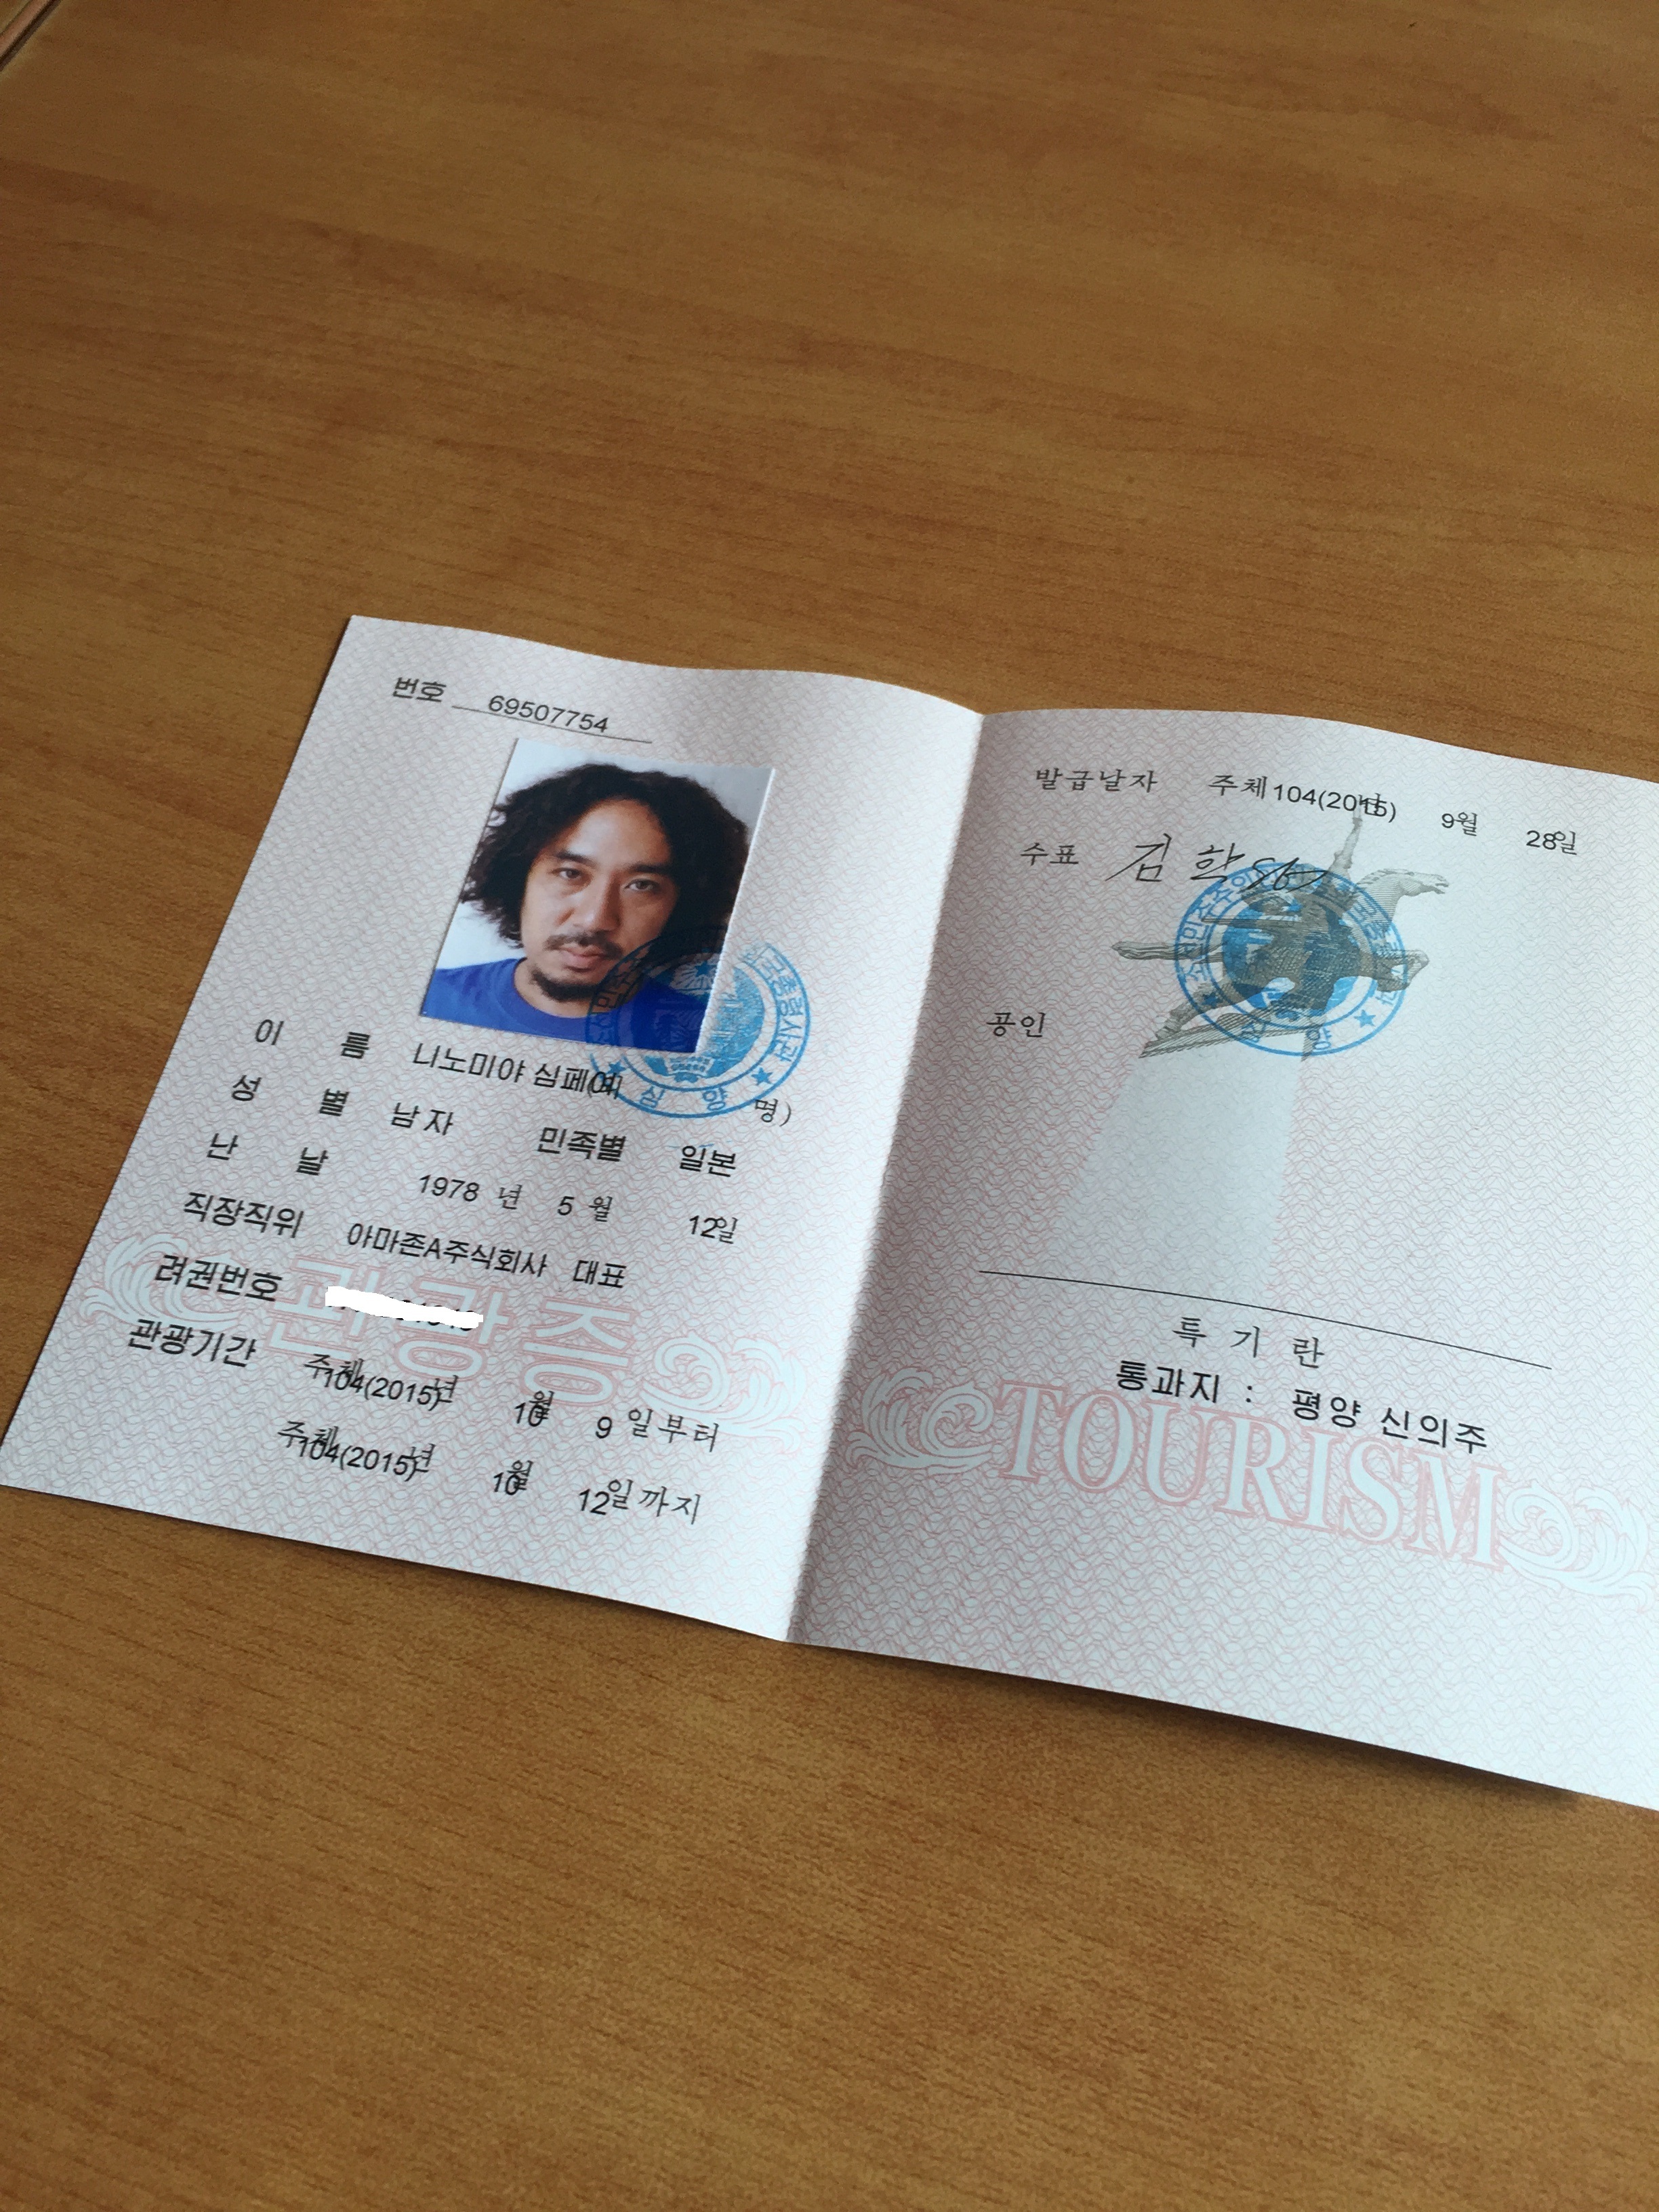 번호 69507754
이 름 니노미야 심페이( 명)
성 별 남자 민족별 일본
난 날 1978 년 5 월 12일
직장직위 아마존A주식회사 대표
려권번호
관광증
관광기간 주체104(2015)년 10월 9 일부터
주체104(2015)년 10월 12일까지
심 양
발급날자 주체104(2015)년 9월 28일
수표 김학
공인
특 기 란
통과지 : 평양 신의주
TOURISM